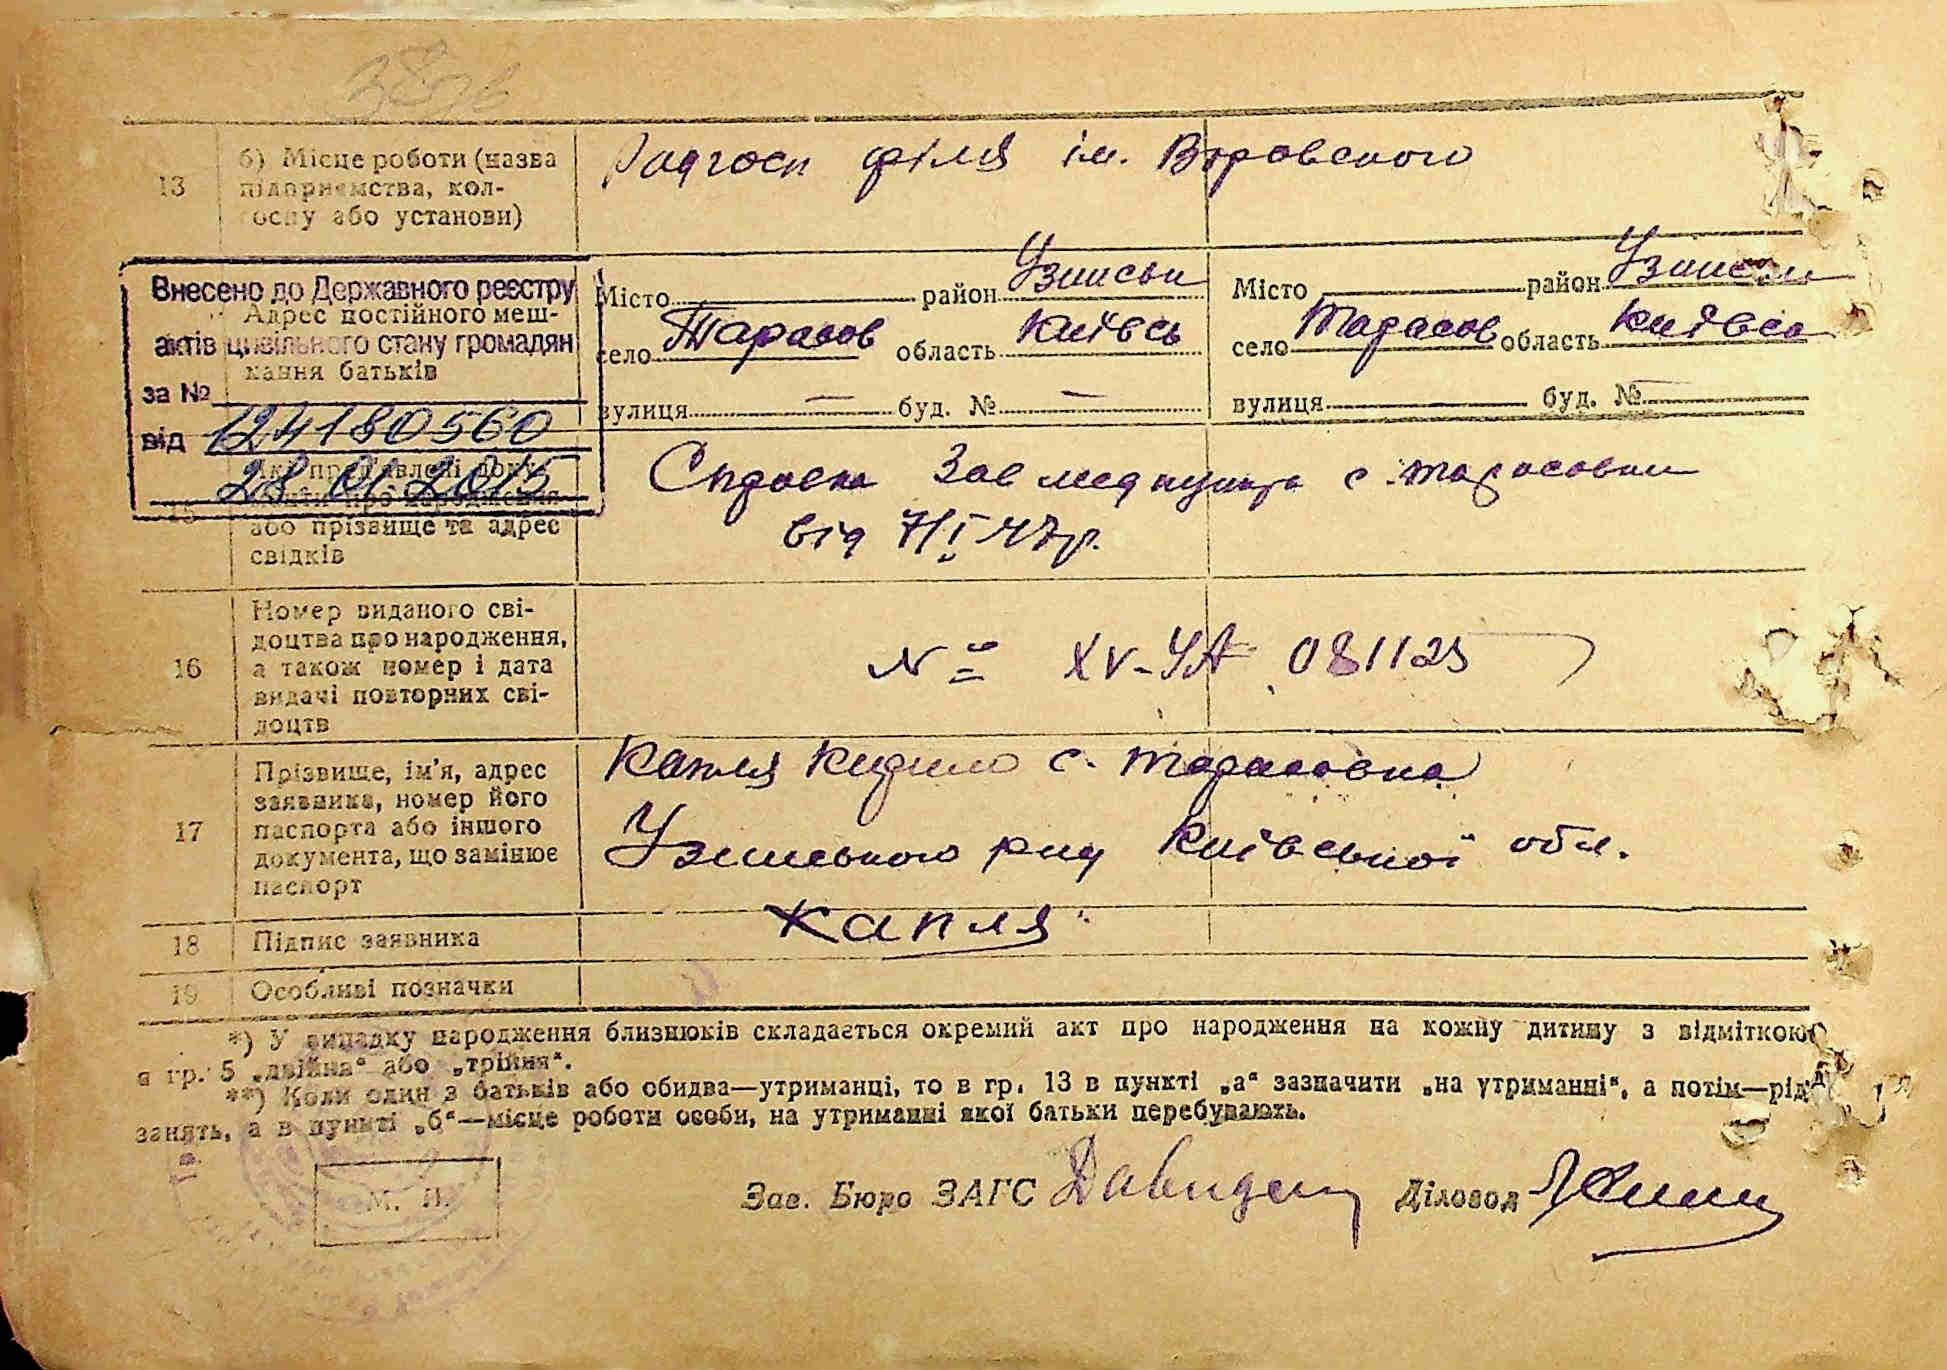 13 б) Місце роботи (назва підприємства, колгоспу або установи)
Радгосп філія ім. Воровського
Внесено до Державного реєстру
актів цивільного стану громадян
за № 124180560
від 28 01 2015
Адрес постійного мешкання батьків
Місто — район Узинськ
село Тарасов область Київсь
вулиця — буд. № —
Місто — район Узинськ
село Тарасов область Київсь
вулиця — буд. № —
15
або прізвище та адрес
свідків
Справка Зав медпункта с. Тарасовки
від 7/I 47р.
16 Номер виданого свідоцтва про народження,
а також номер і дата
видачі повторних свідоцтв
№ XV-УА 081125
17 Прізвище, ім'я, адрес
заявника, номер його
паспорта або іншого
документа, що замінює
паспорт
Капля Кирило с. Тарасовка
Узинського р-ну Київської обл.
18 Підпис заявника
Капля
19 Особливі позначки
*) У випадку народження близнюків складається окремий акт про народження на кожну дитину з відміткою
в гр. 5 „двійня“ або „трійня“.
**) Коли один з батьків або обидва—утриманці, то в гр. 13 в пункті „а“ зазначити „на утриманні“, а потім—рід
занять, а в пункті „б“—місце роботи особи, на утриманні якої батьки перебувають.
М. П.
Зав. Бюро ЗАГС Діловод